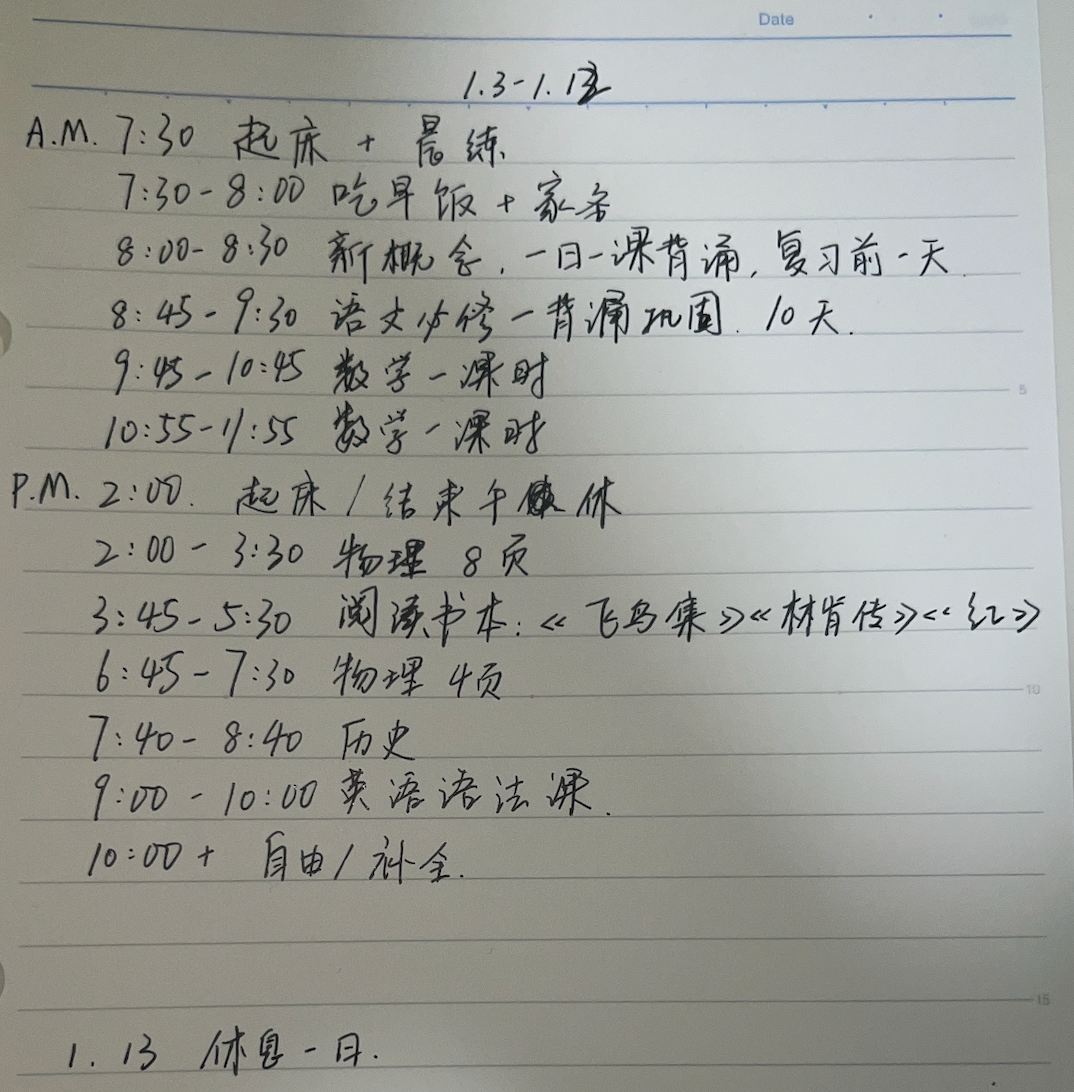 Date
1.3-1.12
A.M. 7:30 起床 + 晨练
7:30-8:00 吃早饭 + 家务
8:00-8:30 新概念,一日一课背诵,复习前一天
8:45-9:30 语文必修一背诵巩固. 10天.
9:45-10:45 数学一课时
5
10:55-11:55 数学一课时
P.M. 2:00. 起床 / 结束午休
2:00-3:30 物理 8页
3:45-5:30 阅读书本:《飞鸟集》《林肯传》《红》
6:45-7:30 物理 4页
10
7:40-8:40 历史
9:00-10:00 英语语法课.
10:00+ 自由/补全.
15
1.13 休息一日.